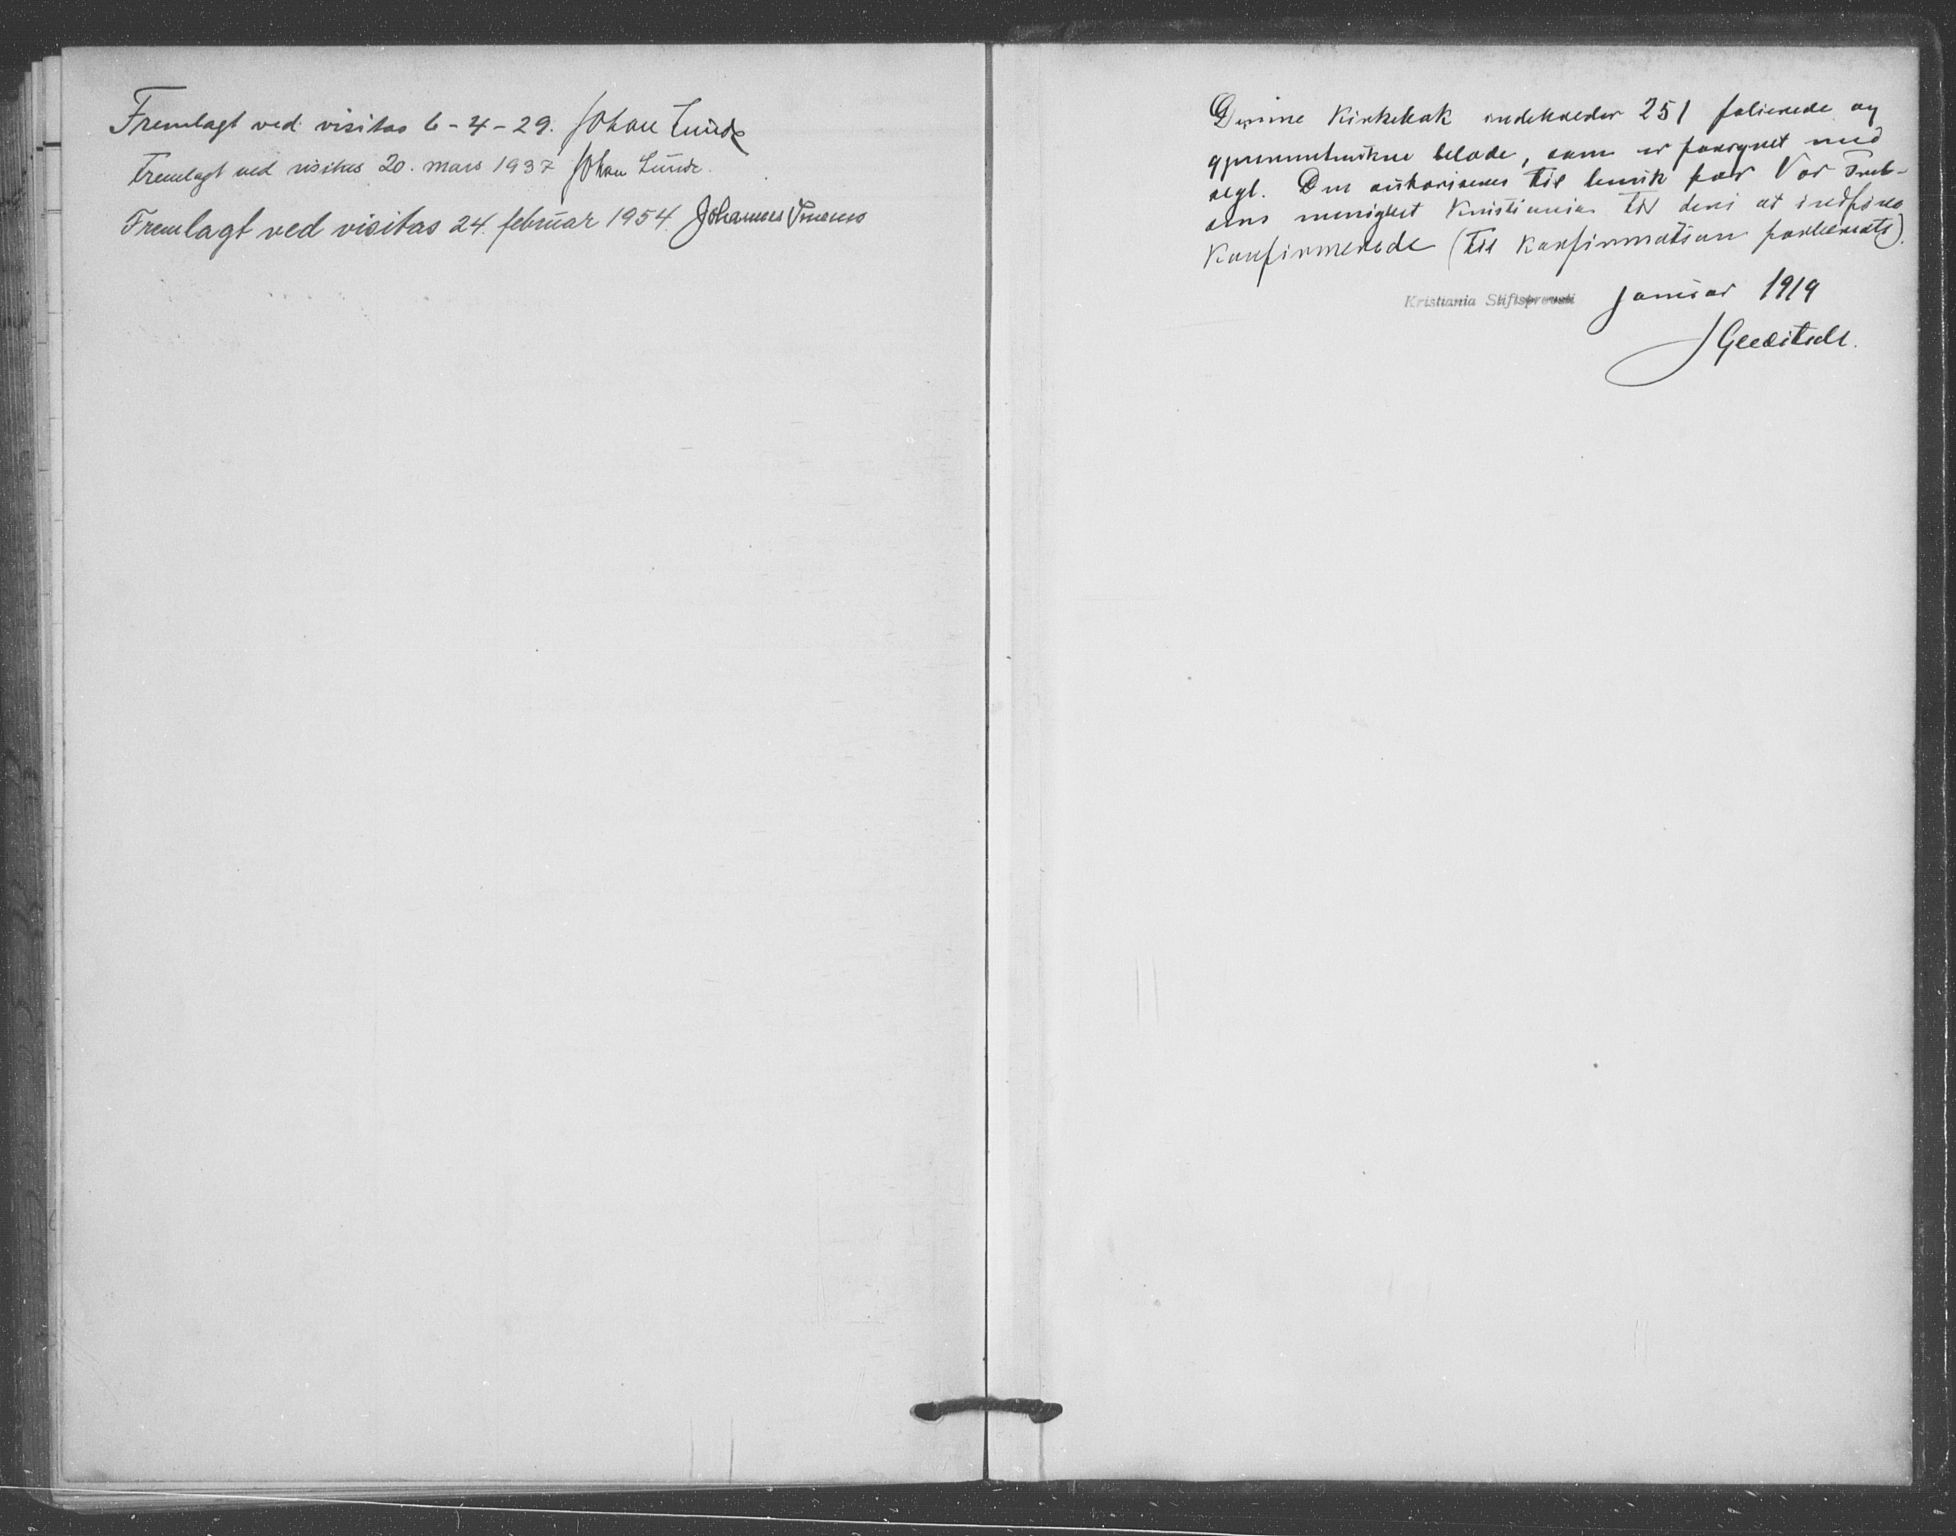 Fremlagt ved visitas 6-4-29. Johan Lunde
Fremlagt ved visitas 20. mars 1937 Johan Lunde.
Fremlagt ved visitas 24. februar 1954. Johannes Smemo
Denne kirkebok indeholder 251 folierede og
gjennemtrukne blade, som er forsynet med
segl. Den autoriseres til bruk for Vor Frels-
ers menighet Kristiania til deri at indføres
Konfirmerede (til konfirmation forberedte).
Kristiania Stiftsprovsti januar 1919